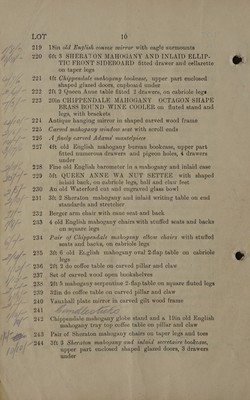 LOT 10
219 18in old English convex mirror with eagle surmounts
220 6ft 3 SHERATON MAHOGANY AND INLAID ELLIP-
TIC FRONT SIDEBOARD fitted drawer and cellarette
on taper legs
221 4ft Chippendale mahogany bookcase, upper part enclosed
shaped glazed doors, cupboard under
222 2ft 2 Queen Anne table fitted 3 drawers, on cabriole legs
223 20in CHIPPENDALE MAHOGANY OCTAGON SHAPE
BRASS BOUND WINE COOLER on fluted stand and
legs, with brackets
224 Antique hanging mirror in shaped carved wood frame
225 Carved mahogany window seat with scroll ends
226 A finely carved Adams' mantelpiece
227 4ft old English mahogany bureau bookcase, upper part
fitted numerous drawers and pigeon holes, 4 drawers
under
228 Fine old English barometer in a mahogany and inlaid case
229 5ft QUEEN ANNE WA NUT SETTEE with shaped
inlaid back, on cabriole legs, ball and claw feet
230 An old Waterford cut and engraved glass bowl
231 3ft 2 Sheraton mahogany and inlaid writing table on end
standards and stretcher
232 Berger arm chair with cane seat and back
233 4 old English mahogany chairs with stuffed seats and backs
on square legs
234 Pair of Chippendale mahogany elbow chairs with stuffed
seats and backs, on cabriole legs
235 3ft 6 old English mahogany oval 2-flap table on cabriole
legs
236 2ft 2 do coffee table on carved pillar and claw
237 Set of carved wood open bookshelves
238 2ft 5 mahogany serpentine 2-flap table on square fluted legs
239 32in do coffee table on carved pillar and claw
240 Vauxhall plate mirror in carved gilt wood frame
241
242 Chippendale mahogany globe stand and a 19in old English
mahogany tray top coffee table on pillar and claw
243 Pair of Sheraton mahogany chairs on taper legs and toes
244 3ft 3 Sheraton mahogany and inlaid secretaire bookcase,
upper part enclosed shaped glazed doors, 3 drawers
under